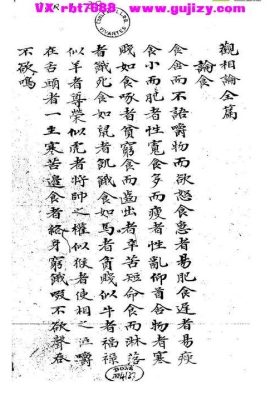 VX-rbt7088、www.gujizy.com
觀相論全篇
論食
食含而不語嚼物而欲怒食急者易肥食遲者易瘦
食小而肥者性寬食多而瘦者性亂仰首含物者寒
賤如食啄者貧窮食而齒出者辛苦短命食而淋落
者餓死食如鼠者飢餓食如馬者貧賤似牛者福祿
似羊者尊榮似虎者將帥之權似猴者使相之位嚼
在舌頭者一生寒苦邊食者終身窮餓啜不欲聲吞
不欲鳴